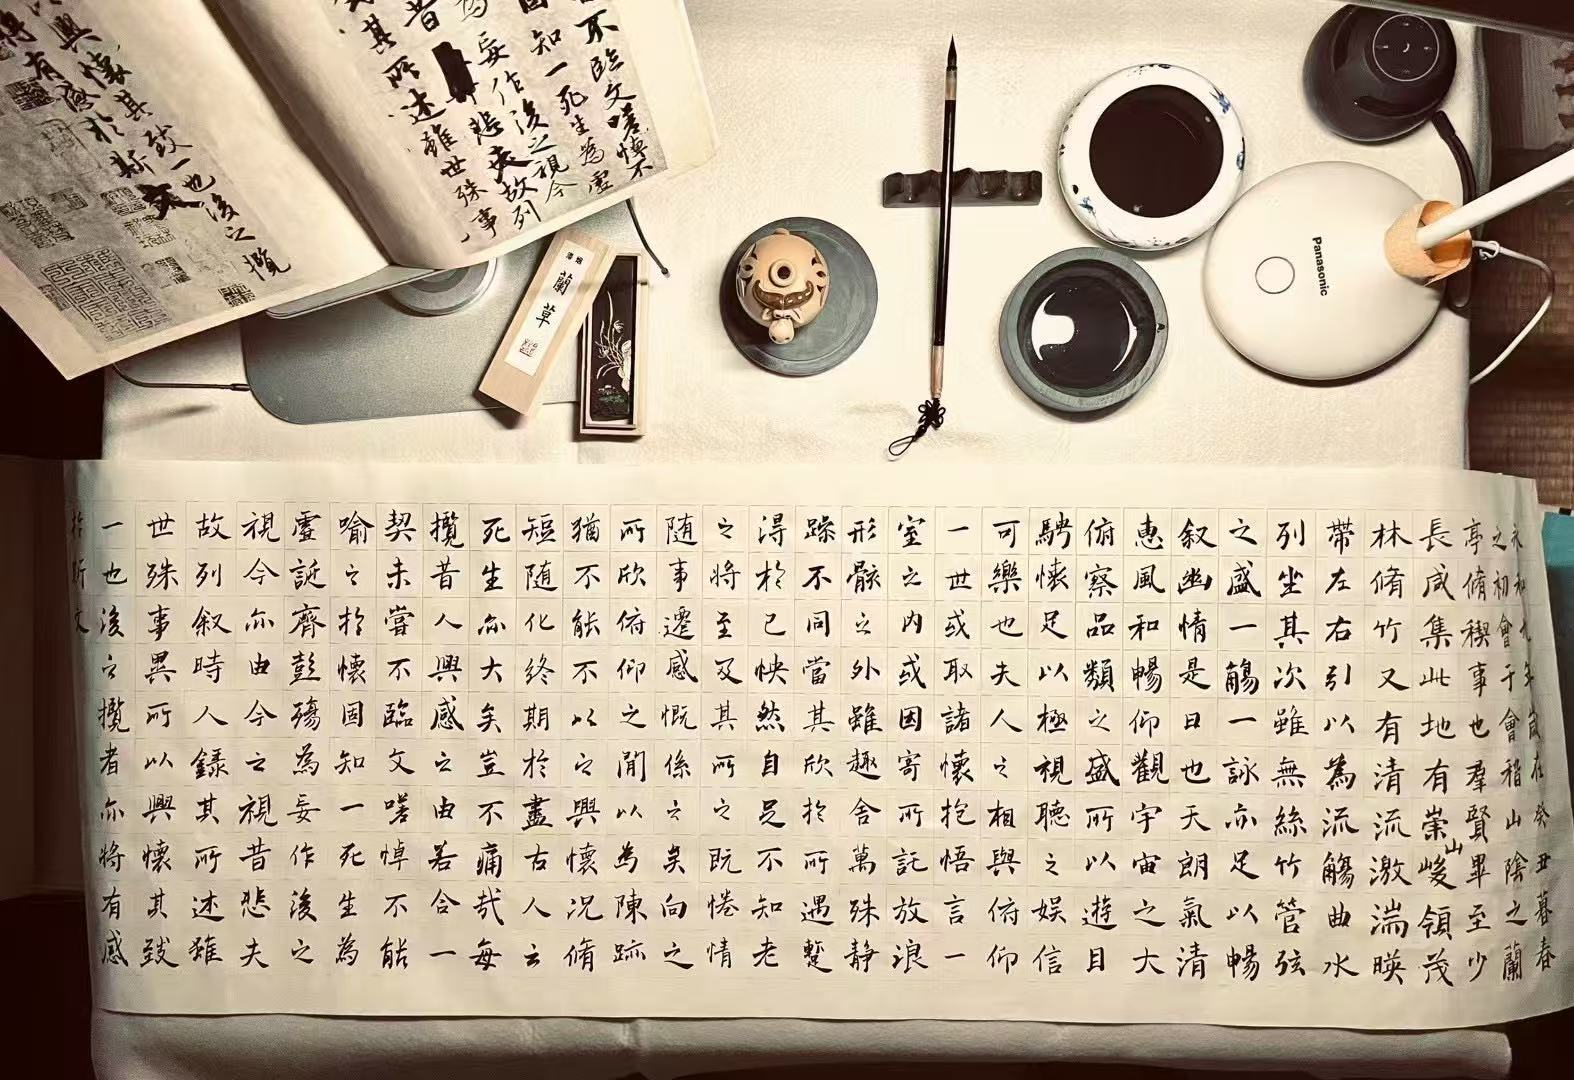 不臨文嗟悼不
固知一死生為虛
為妄作後之視今
昔悲夫故列
其所述雖世殊事
興懷其致一也後之攬
將有感於斯文
蘭草
Panasonic
永和九年歲在癸丑暮春
之初會于會稽山陰之蘭
亭脩稧事也羣賢畢至少
長咸集此地有崇山峻領茂
林脩竹又有清流激湍暎
帶左右引以為流觴曲水
列坐其次雖無絲竹管弦
之盛一觴一詠亦足以暢
叙幽情是日也天朗氣清
惠風和暢仰觀宇宙之大
俯察品類之盛所以遊目
騁懷足以極視聽之娛信
可樂也夫人之相與俯仰
一世或取諸懷抱悟言一
室之內或因寄所託放浪
形骸之外雖趣舍萬殊静
躁不同當其欣於所遇蹔
得於己怏然自足不知老
之將至及其所之既惓情
随事遷感慨係之矣向之
所欣俯仰之閒以為陳跡
猶不能不以之興懷況脩
短随化終期於盡古人云
死生亦大矣豈不痛哉每
攬昔人興感之由若合一
契未嘗不臨文嗟悼不能
喻之於懷固知一死生為
虛誕齊彭殤為妄作後之
視今亦由今之視昔悲夫
故列叙時人録其所述雖
世殊事異所以興懷其致
一也後之攬者亦將有感
於斯文